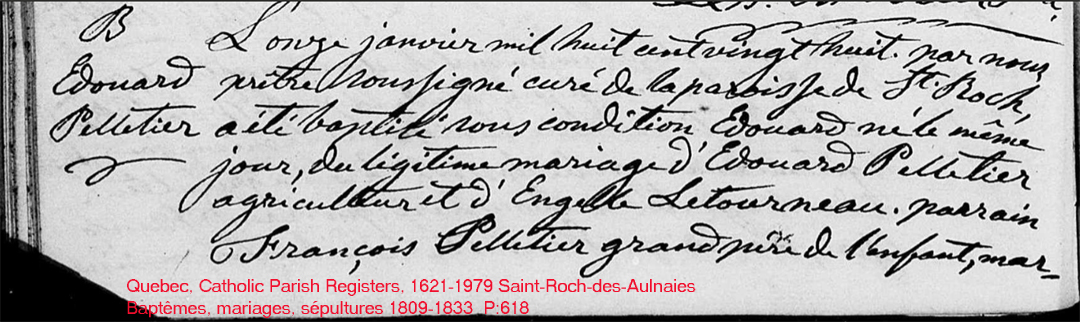 B
Edouard
Pelletier
L'onze janvier mil huit cent vingt huit. par nous
prêtre soussigné curé de la paroisse de St. Roch,
a été baptisé sous condition Edouard né le même
jour, du légitime mariage d'Edouard Pelletier
agriculteur et d'Engelle Letourneau. parrain
François Pelletier grand père de l'enfant, mar-
Quebec, Catholic Parish Registers, 1621-1979 Saint-Roch-des-Aulnaies
Baptêmes, mariages, sépultures 1809-1833 P:618